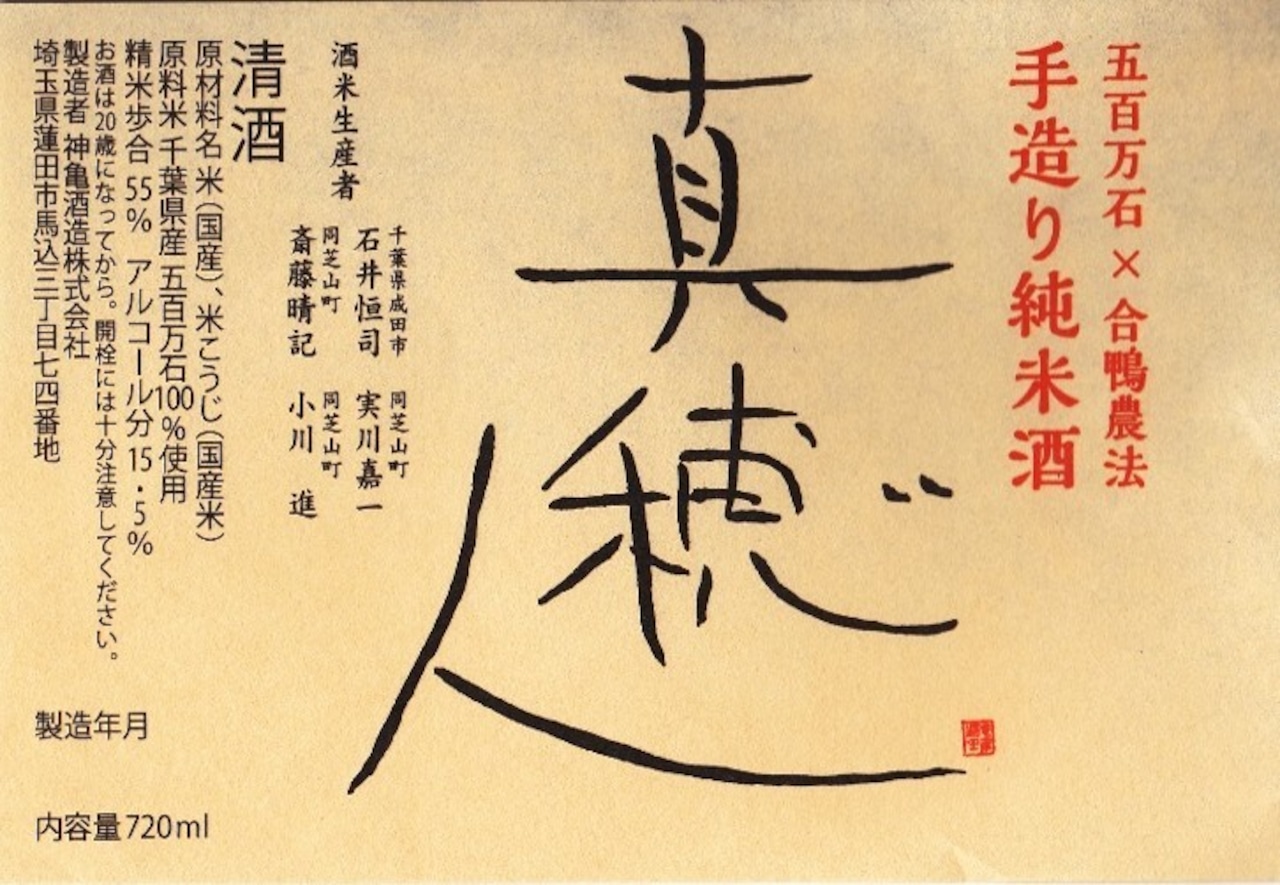 五百万石×合鴨農法
手造り純米酒
真穂人
酒米生産者
千葉県成田市
石井恒司
同芝山町
実川嘉一
同芝山町
斎藤晴記
同芝山町
小川 進
清酒
原材料名 米（国産）、米こうじ（国産米）
原料米 千葉県産 五百万石100%使用
精米歩合 55% アルコール分 15・5%
お酒は20歳になってから。開栓には十分注意してください。
製造者 神亀酒造株式会社
埼玉県蓮田市馬込三丁目七四番地
製造年月
内容量720ml